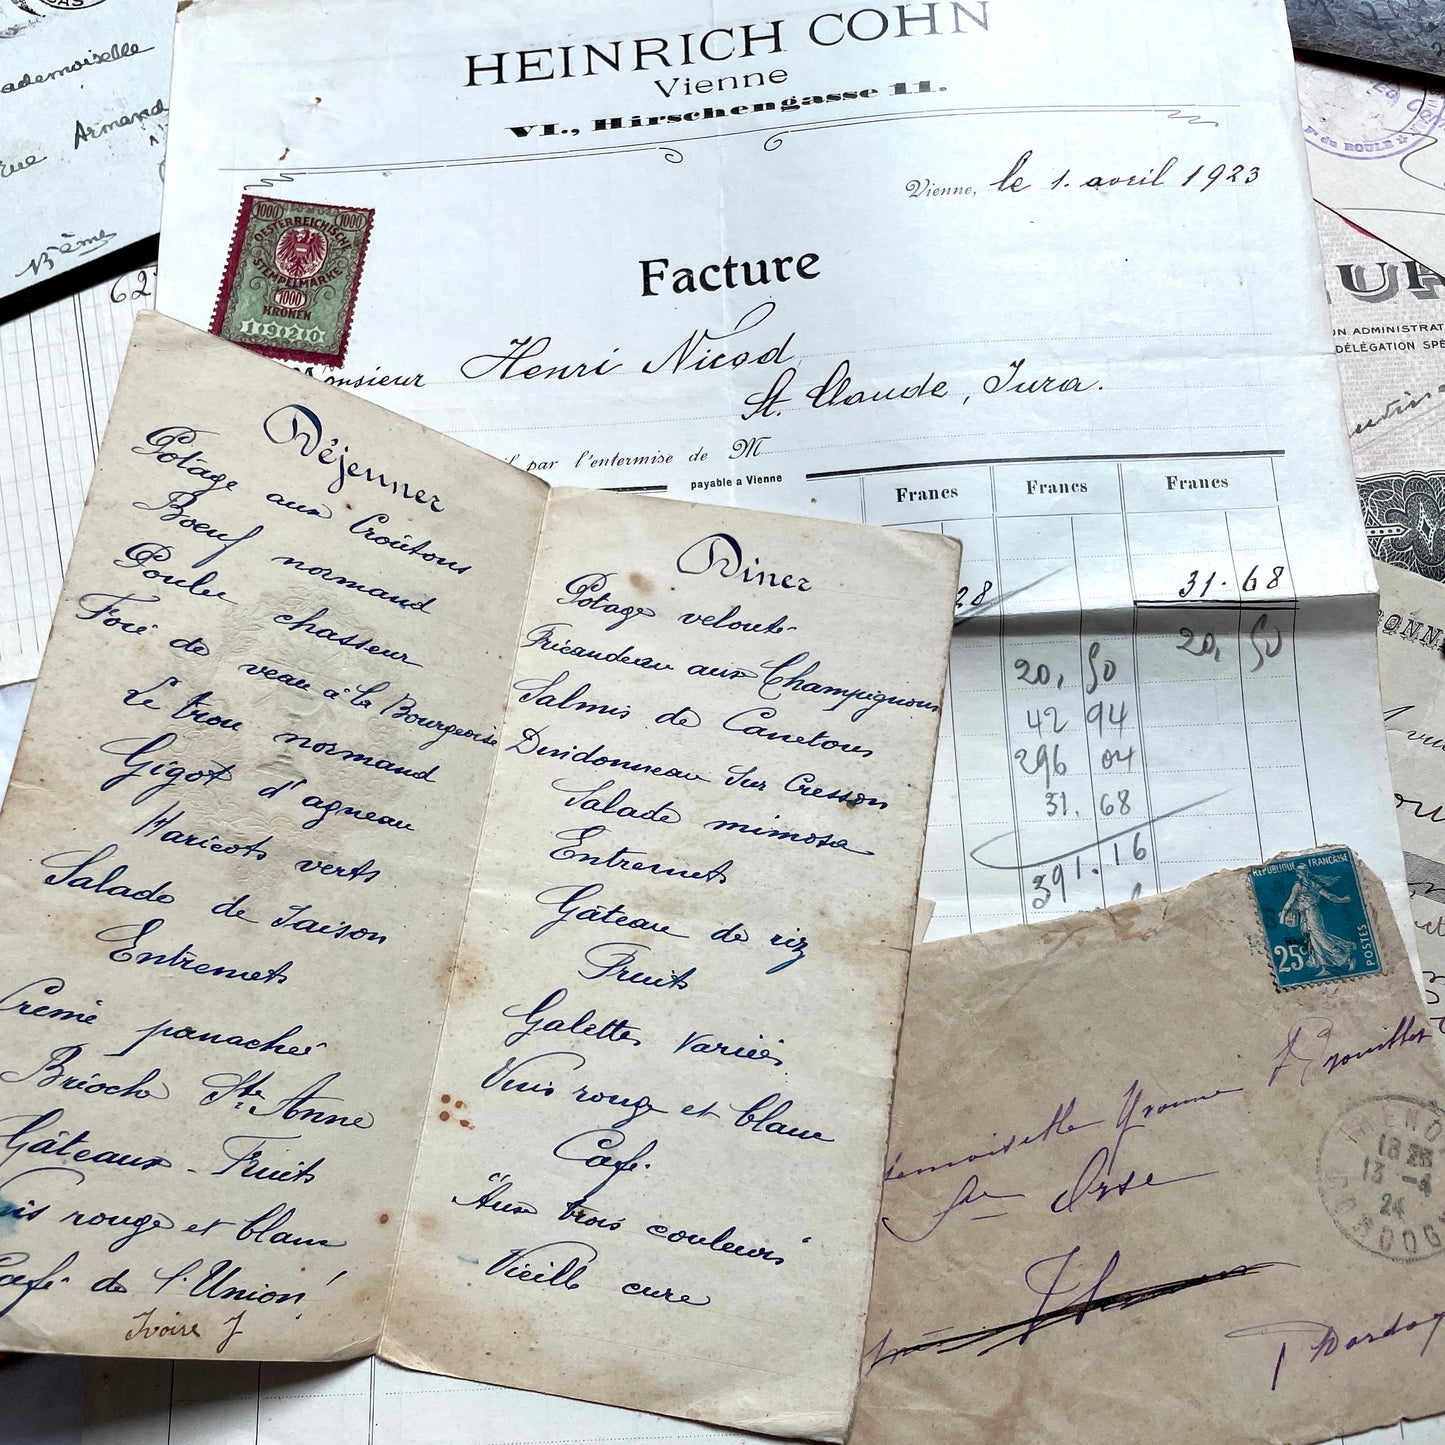 HEINRICH COHN
Vienne
VI., Hirschengasse 11.
Vienne, le 1. avril 1923
1000 1000
OESTERREICHISCHE
STEMPELMARKE
1000
KRONEN
1920
Facture
Monsieur Henri Nicod,
St. Claude, Jura.
par l'entermise de M
payable a Vienne
Francs Francs Francs
28 31.68
20,50
20,50
42 94
296 04
31.68
391.16
Déjeuner
Potage aux Croûtons
Boeuf normand
Poule chasseur
Foie de veau à la Bourgeoise
Le trou normand
Gigot d'agneau
Haricots verts
Salade de Saison
Entremets
Crème panachée
Brioche Ste Anne
Gâteaux - Fruits
Vins rouge et blanc
Café de l'Union!
Ivoire J
Diner
Potage velouté
Fricandeau aux Champignons
Salmis de Canetons
Dindonneau Sur Cresson
Salade mimosa
Entremets
Gâteau de riz
Fruits
Galettes variées
Vins rouge et blanc
Café.
"Aux trois couleurs"
Vieille cure
ademoiselle
rue Armand
13ème
62
Pe du ROULE
UN ADMINISTRAT
DÉLÉGATION SPÉ
REPUBLIQUE FRANÇAISE
25c
POSTES
demoiselle Yvonne
Orse
THENO
18
13 -4
24
DORDOG